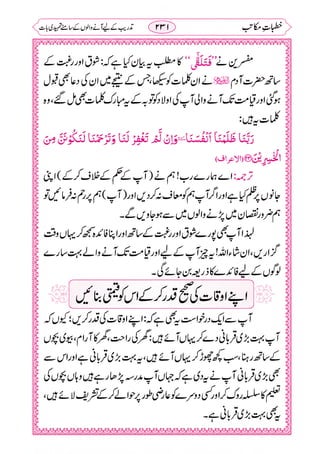 خطباتِ مکاتب ۲۳۱ تدریب کے لیے آنے والوں کے سامنے تمہیدی بات
مفسرین نے ”فَتَلَقّٰۤی“ کا مطلب یہ بیان کیا ہے کہ: شوق اور رغبت کے
ساتھ حضرت آدم علیہ السلام نے ان کلمات کو سیکھا جس کے نتیجے میں ان کی دعا بھی قبول
ہوگئی اور قیامت تک آنے والی آپ کی اولاد کو توبہ کے مبارک کلمات بھی مل گئے، وہ
کلمات یہ ہیں:
رَبَّنَا ظَلَمْنَاۤ اَنْفُسَنَا وَاِنْ لَّمْ تَغْفِرْ لَنَا وَتَرْحَمْنَا لَنَكُوْنَنَّ مِنَ
الْخٰسِرِيْنَ (الاعراف)
ترجمہ: اے ہمارے رب! ہم نے (آپ کے حکم کے خلاف کر کے) اپنی
جانوں پر ظلم کر لیا ہے اور اگر آپ ہم کو معاف نہ کریں اور (آپ) ہم پر رحم نہ فرمائیں تو
ہم ضرور نقصان میں پڑنے والوں میں سے ہو جاویں گے۔
لہٰذا آپ بھی پورے شوق اور رغبت کے ساتھ اور اپنا فائدہ سمجھ کر یہاں وقت
گزاریں، ان شاء اللہ! یہ چیز آپ کے لیے اور قیامت تک آنے والے بہت سارے
لوگوں کے لیے فائدے کا ذریعہ بن جائے گی۔
اپنے اوقات کی صحیح قدر کر کے اس کو قیمتی بنائیں
آپ سے ایک درخواست یہ بھی ہے کہ: اپنے اوقات کی قدر کریں؛ کیوں کہ
آپ بہت بڑی قربانی دے کر یہاں آئے ہیں: گھر کی راحت، گھر کا آرام، بیوی، بچوں
کے ساتھ رہنا، سب کچھ چھوڑ کر یہاں آئے ہیں، یہ بہت بڑی قربانی ہے اور اس سے
بھی بڑی قربانی آپ نے یہ دی ہے کہ جہاں آپ مدرسہ پڑھا رہے ہیں وہاں بچوں کی
تعلیم کا سلسلہ روک کر اور کسی دوسرے کو عارضی طور پر حوالے کر کے تشریف لائے ہیں،
یہ بھی بہت بڑی قربانی ہے۔